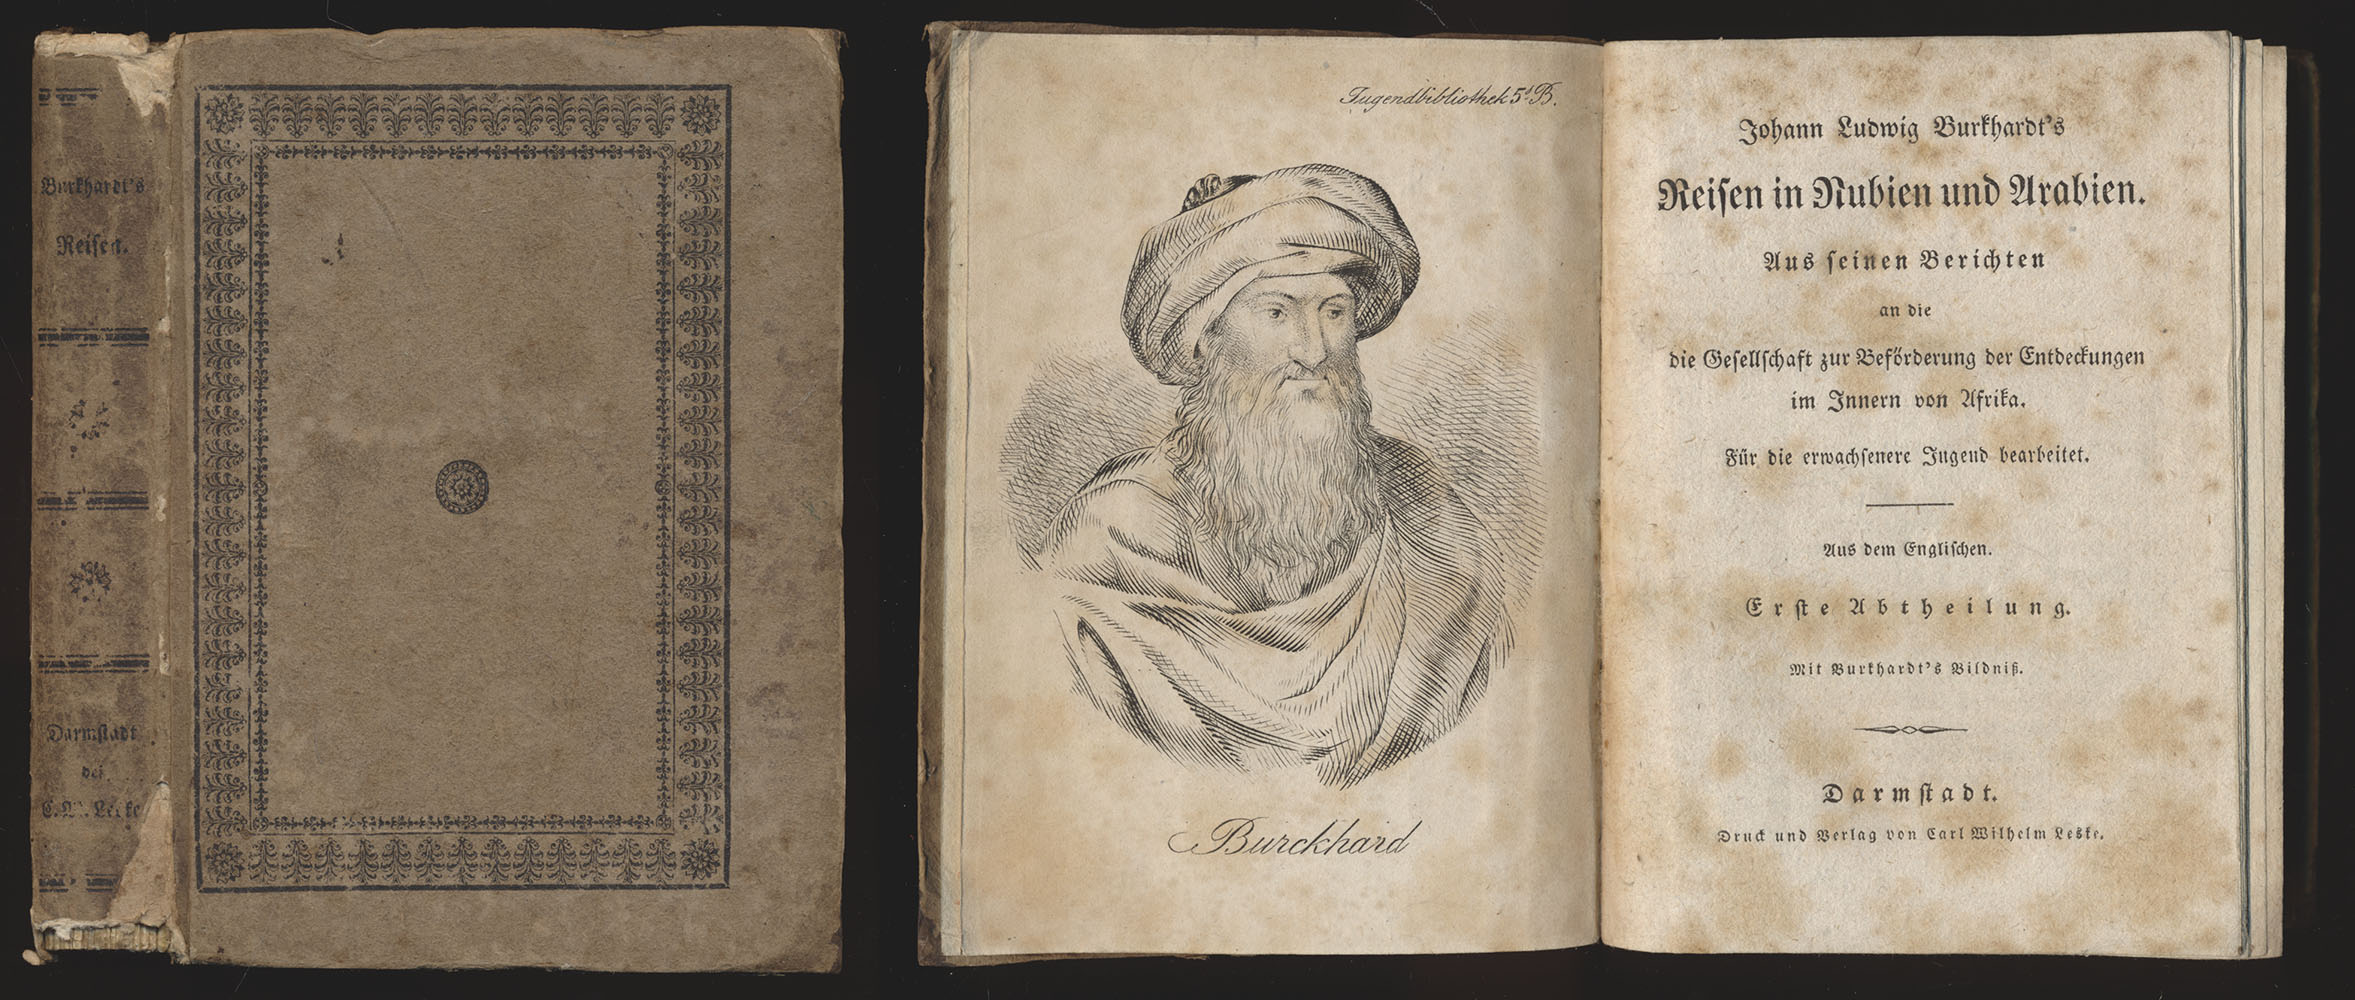 Burkhardt's
Reisen.
Darmstadt
bei
C. W. Leske
Jugendbibliothek 5r B.
Burckhard
Johann Ludwig Burkhardt's
Reisen in Nubien und Arabien.
Aus seinen Berichten
an die
die Gesellschaft zur Beförderung der Entdeckungen
im Innern von Afrika.
Für die erwachsenere Jugend bearbeitet.
Aus dem Englischen.
Erste Abtheilung.
Mit Burkhardt's Bildniß.
Darmstadt.
Druck und Verlag von Carl Wilhelm Leske.